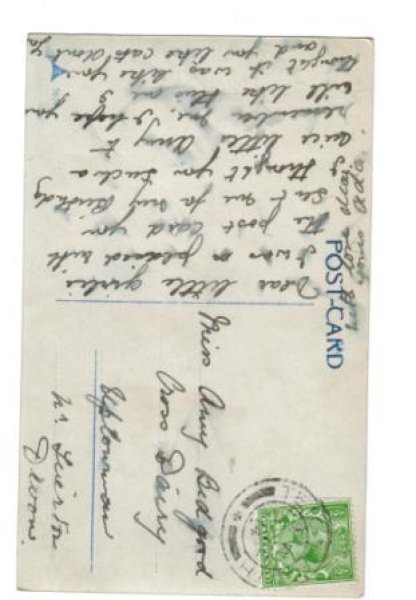 POST CARD
Dear little girlie
I was so pleased with
the post card you
sent me for my Birthday
I thought you such a
nice little Amy to
remember me I hope you
will like this one I
thought it was like you
and you like cats dont you
with love
Miss Amy Bedford
Cross Dairy
Uplowman
Nr Tiverton
Devon